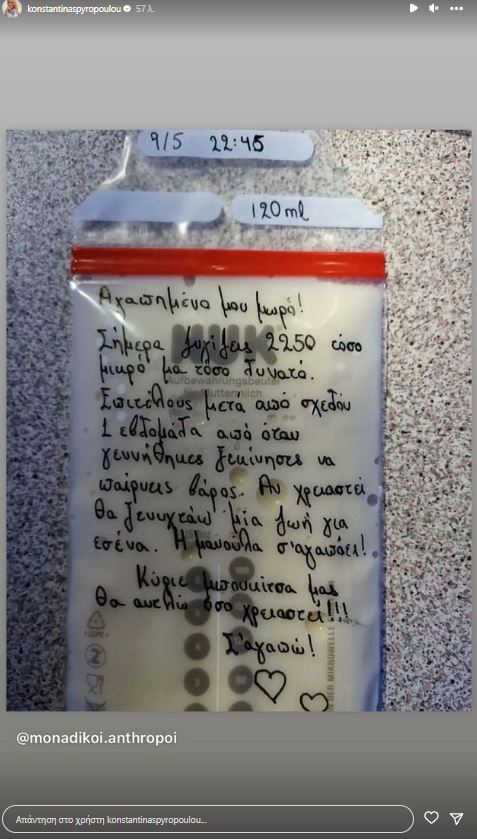 konstantinaspyropoulou 57 λ.
9/5 22:45
120ml
Αγαπημένο μου μωρό!
Σήμερα ζυγίζεις 2250 τόσο
μικρό μα τόσο δυνατό.
Aufbewahrungsbeutel
für Muttermilch
Επιτέλους μετά από σχεδόν
1 εβδομάδα από όταν
γεννήθηκες ξεκίνησες να
παίρνεις βάρος. Αν χρειαστεί
θα ξενυχτάω μία ζωή για
εσένα. Η μανούλα σ'αγαπάει!
Κύριε μπουκίτσα μας
θα αντλώ όσο χρειαστεί!!!
Σ'αγαπώ!
@monadikoi.anthropoi
Απάντηση στο χρήστη konstantinaspyropoulou...